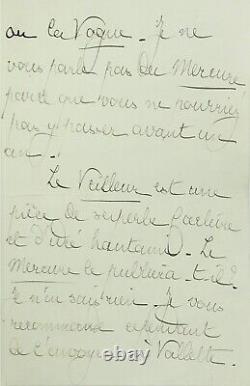 ou la Vogue. Je ne
vous parle pas du Mercure
parce que vous ne pourriez
pas y passer avant un
an.
Le Veilleur est une
pièce de superbe
et d'idée hautaine. Le
Mercure le publiera-t-il?
Je n'en sais rien. Je vous
recommande cependant
de l'envoyer à Vallette.